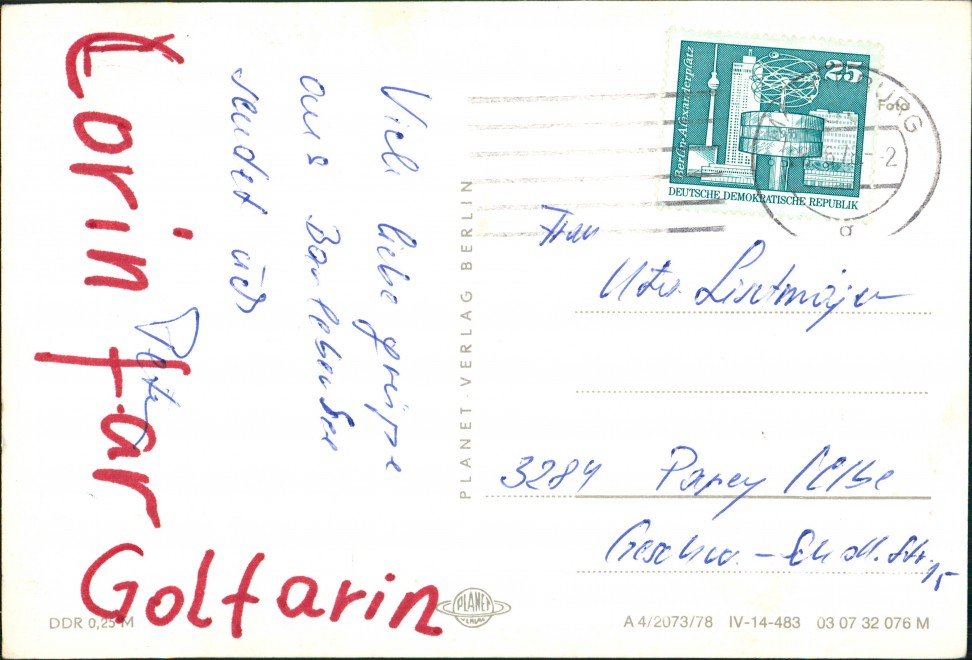 Lorin far
Golfarin
Viele liebe grüße
aus Barleber See
sendet euch
Peter
PLANET-VERLAG BERLIN
Berlin-Alexanderplatz
25
DEUTSCHE DEMOKRATISCHE REPUBLIK
Foto
BURG
-2
a
Frau
3284 Parey /Elbe
Geschw. - Scholl. Str.
15
DDR 0,25 M
PLANET
VERLAG
A 4/2073/78 IV-14-483 03 07 32 076 M